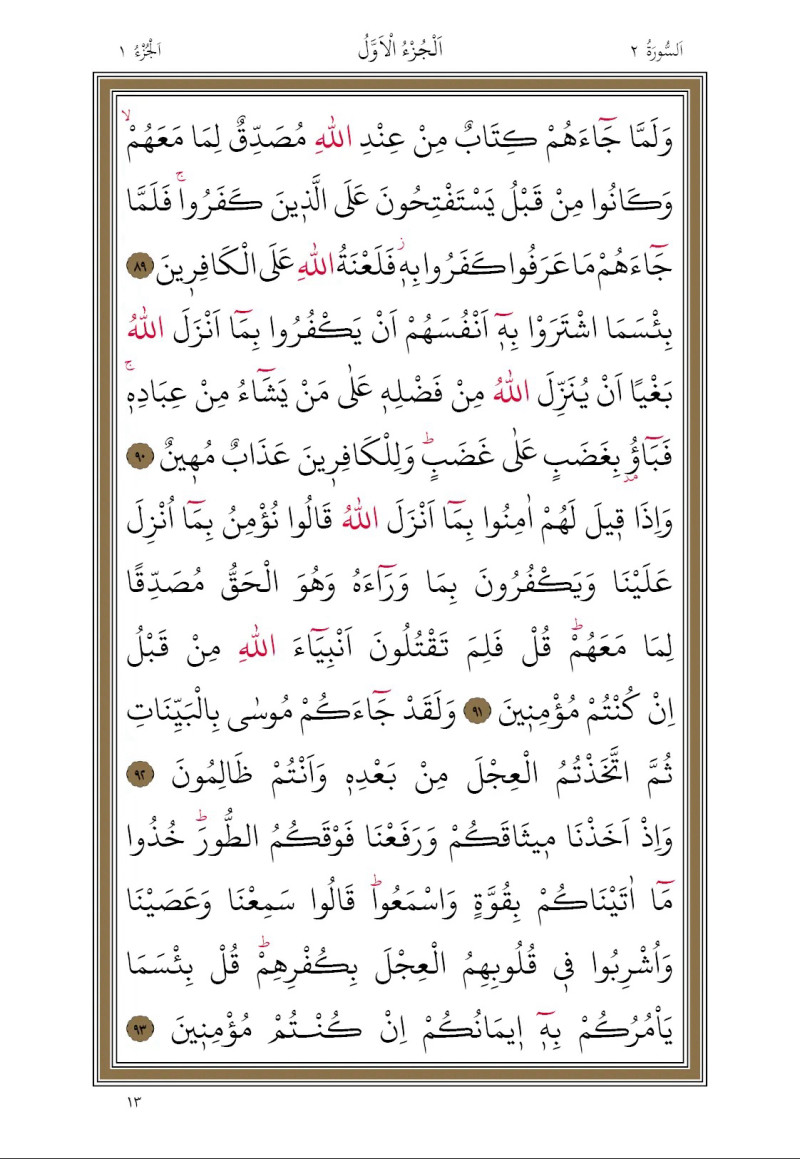 اَلسُّورَةُ ٢ اَلْجُزْءُ الْاَوَّلُ اَلْجُزْءُ ١
وَلَمَّا جَٓاءَهُمْ كِتَابٌ مِنْ عِنْدِ اللّٰهِ مُصَدِّقٌ لِمَا مَعَهُمْۙ
وَكَانُوا مِنْ قَبْلُ يَسْتَفْتِحُونَ عَلَى الَّذ۪ينَ كَفَرُواۚ فَلَمَّا
جَٓاءَهُمْ مَا عَرَفُوا كَفَرُوا بِه۪ۘ فَلَعْنَةُ اللّٰهِ عَلَى الْكَافِر۪ينَ ﴿٨٩﴾
بِئْسَمَا اشْتَرَوْا بِه۪ٓ اَنْفُسَهُمْ اَنْ يَكْفُرُوا بِمَٓا اَنْزَلَ اللّٰهُ
بَغْيًا اَنْ يُنَزِّلَ اللّٰهُ مِنْ فَضْلِه۪ عَلٰى مَنْ يَشَٓاءُ مِنْ عِبَادِه۪ۚ
فَبَٓاؤُ۫ بِغَضَبٍ عَلٰى غَضَبٍۜ وَلِلْكَافِر۪ينَ عَذَابٌ مُه۪ينٌ ﴿٩٠﴾
وَاِذَا ق۪يلَ لَهُمْ اٰمِنُوا بِمَٓا اَنْزَلَ اللّٰهُ قَالُوا نُؤْمِنُ بِمَٓا اُنْزِلَ
عَلَيْنَا وَيَكْفُرُونَ بِمَا وَرَٓاءَهُ وَهُوَ الْحَقُّ مُصَدِّقًا
لِمَا مَعَهُمْۜ قُلْ فَلِمَ تَقْتُلُونَ اَنْبِيَٓاءَ اللّٰهِ مِنْ قَبْلُ
اِنْ كُنْتُمْ مُؤْمِن۪ينَ ﴿٩١﴾ وَلَقَدْ جَٓاءَكُمْ مُوسٰى بِالْبَيِّنَاتِ
ثُمَّ اتَّخَذْتُمُ الْعِجْلَ مِنْ بَعْدِه۪ وَاَنْتُمْ ظَالِمُونَ ﴿٩٢﴾
وَاِذْ اَخَذْنَا م۪يثَاقَكُمْ وَرَفَعْنَا فَوْقَكُمُ الطُّورَۜ خُذُوا
مَٓا اٰتَيْنَاكُمْ بِقُوَّةٍ وَاسْمَعُواۜ قَالُوا سَمِعْنَا وَعَصَيْنَا
وَاُشْرِبُوا ف۪ي قُلُوبِهِمُ الْعِجْلَ بِكُفْرِهِمْۜ قُلْ بِئْسَمَا
يَاْمُرُكُمْ بِه۪ٓ ا۪يمَانُكُمْ اِنْ كُنْتُمْ مُؤْمِن۪ينَ ﴿٩٣﴾
١٣